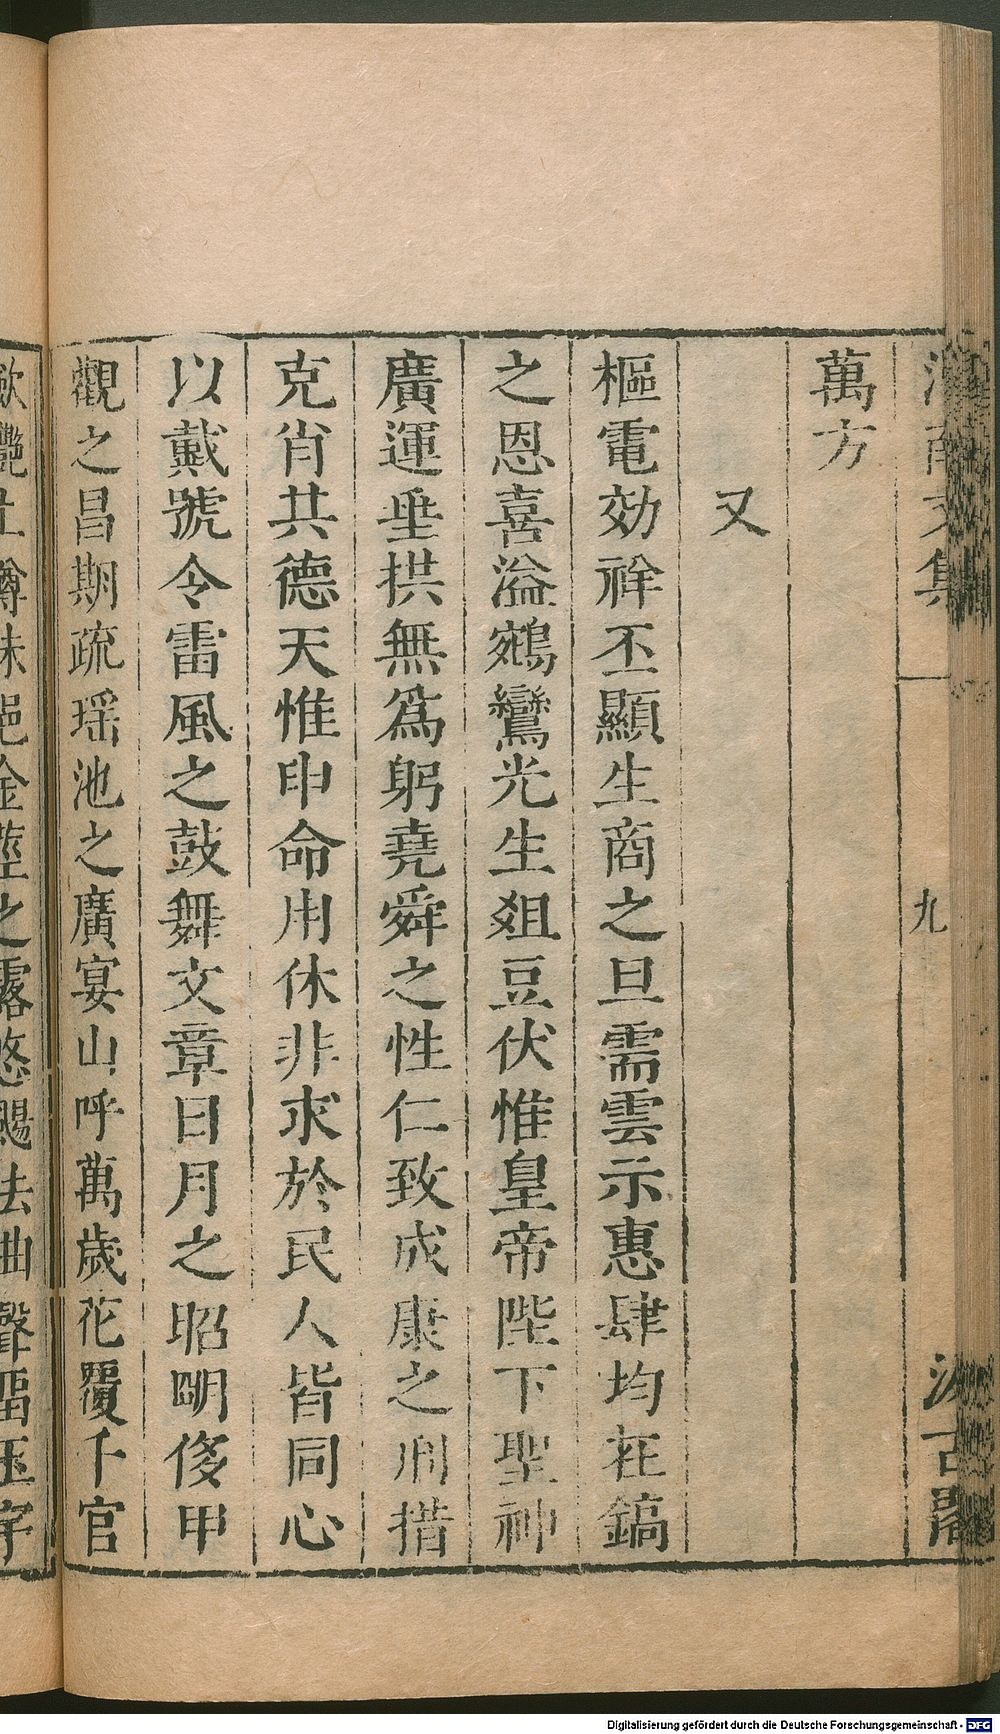 文集
九
古閣
萬方
又
樞電効祥丕顯生商之旦需雲示惠肆均在鎬
之恩喜溢鵷鸞光生爼豆伏惟皇帝陛下聖神
廣運垂拱無爲躬堯舜之性仁致成康之刑措
克肖共德天惟申命用休非求於民人皆同心
以戴號令雷風之鼓舞文章日月之昭明侈甲
觀之昌期疏瑶池之廣宴山呼萬歲花覆千官
金莖之露悠賜法曲聲
Digitalisierung gefördert durch die Deutsche Forschungsgemeinschaft - DFG